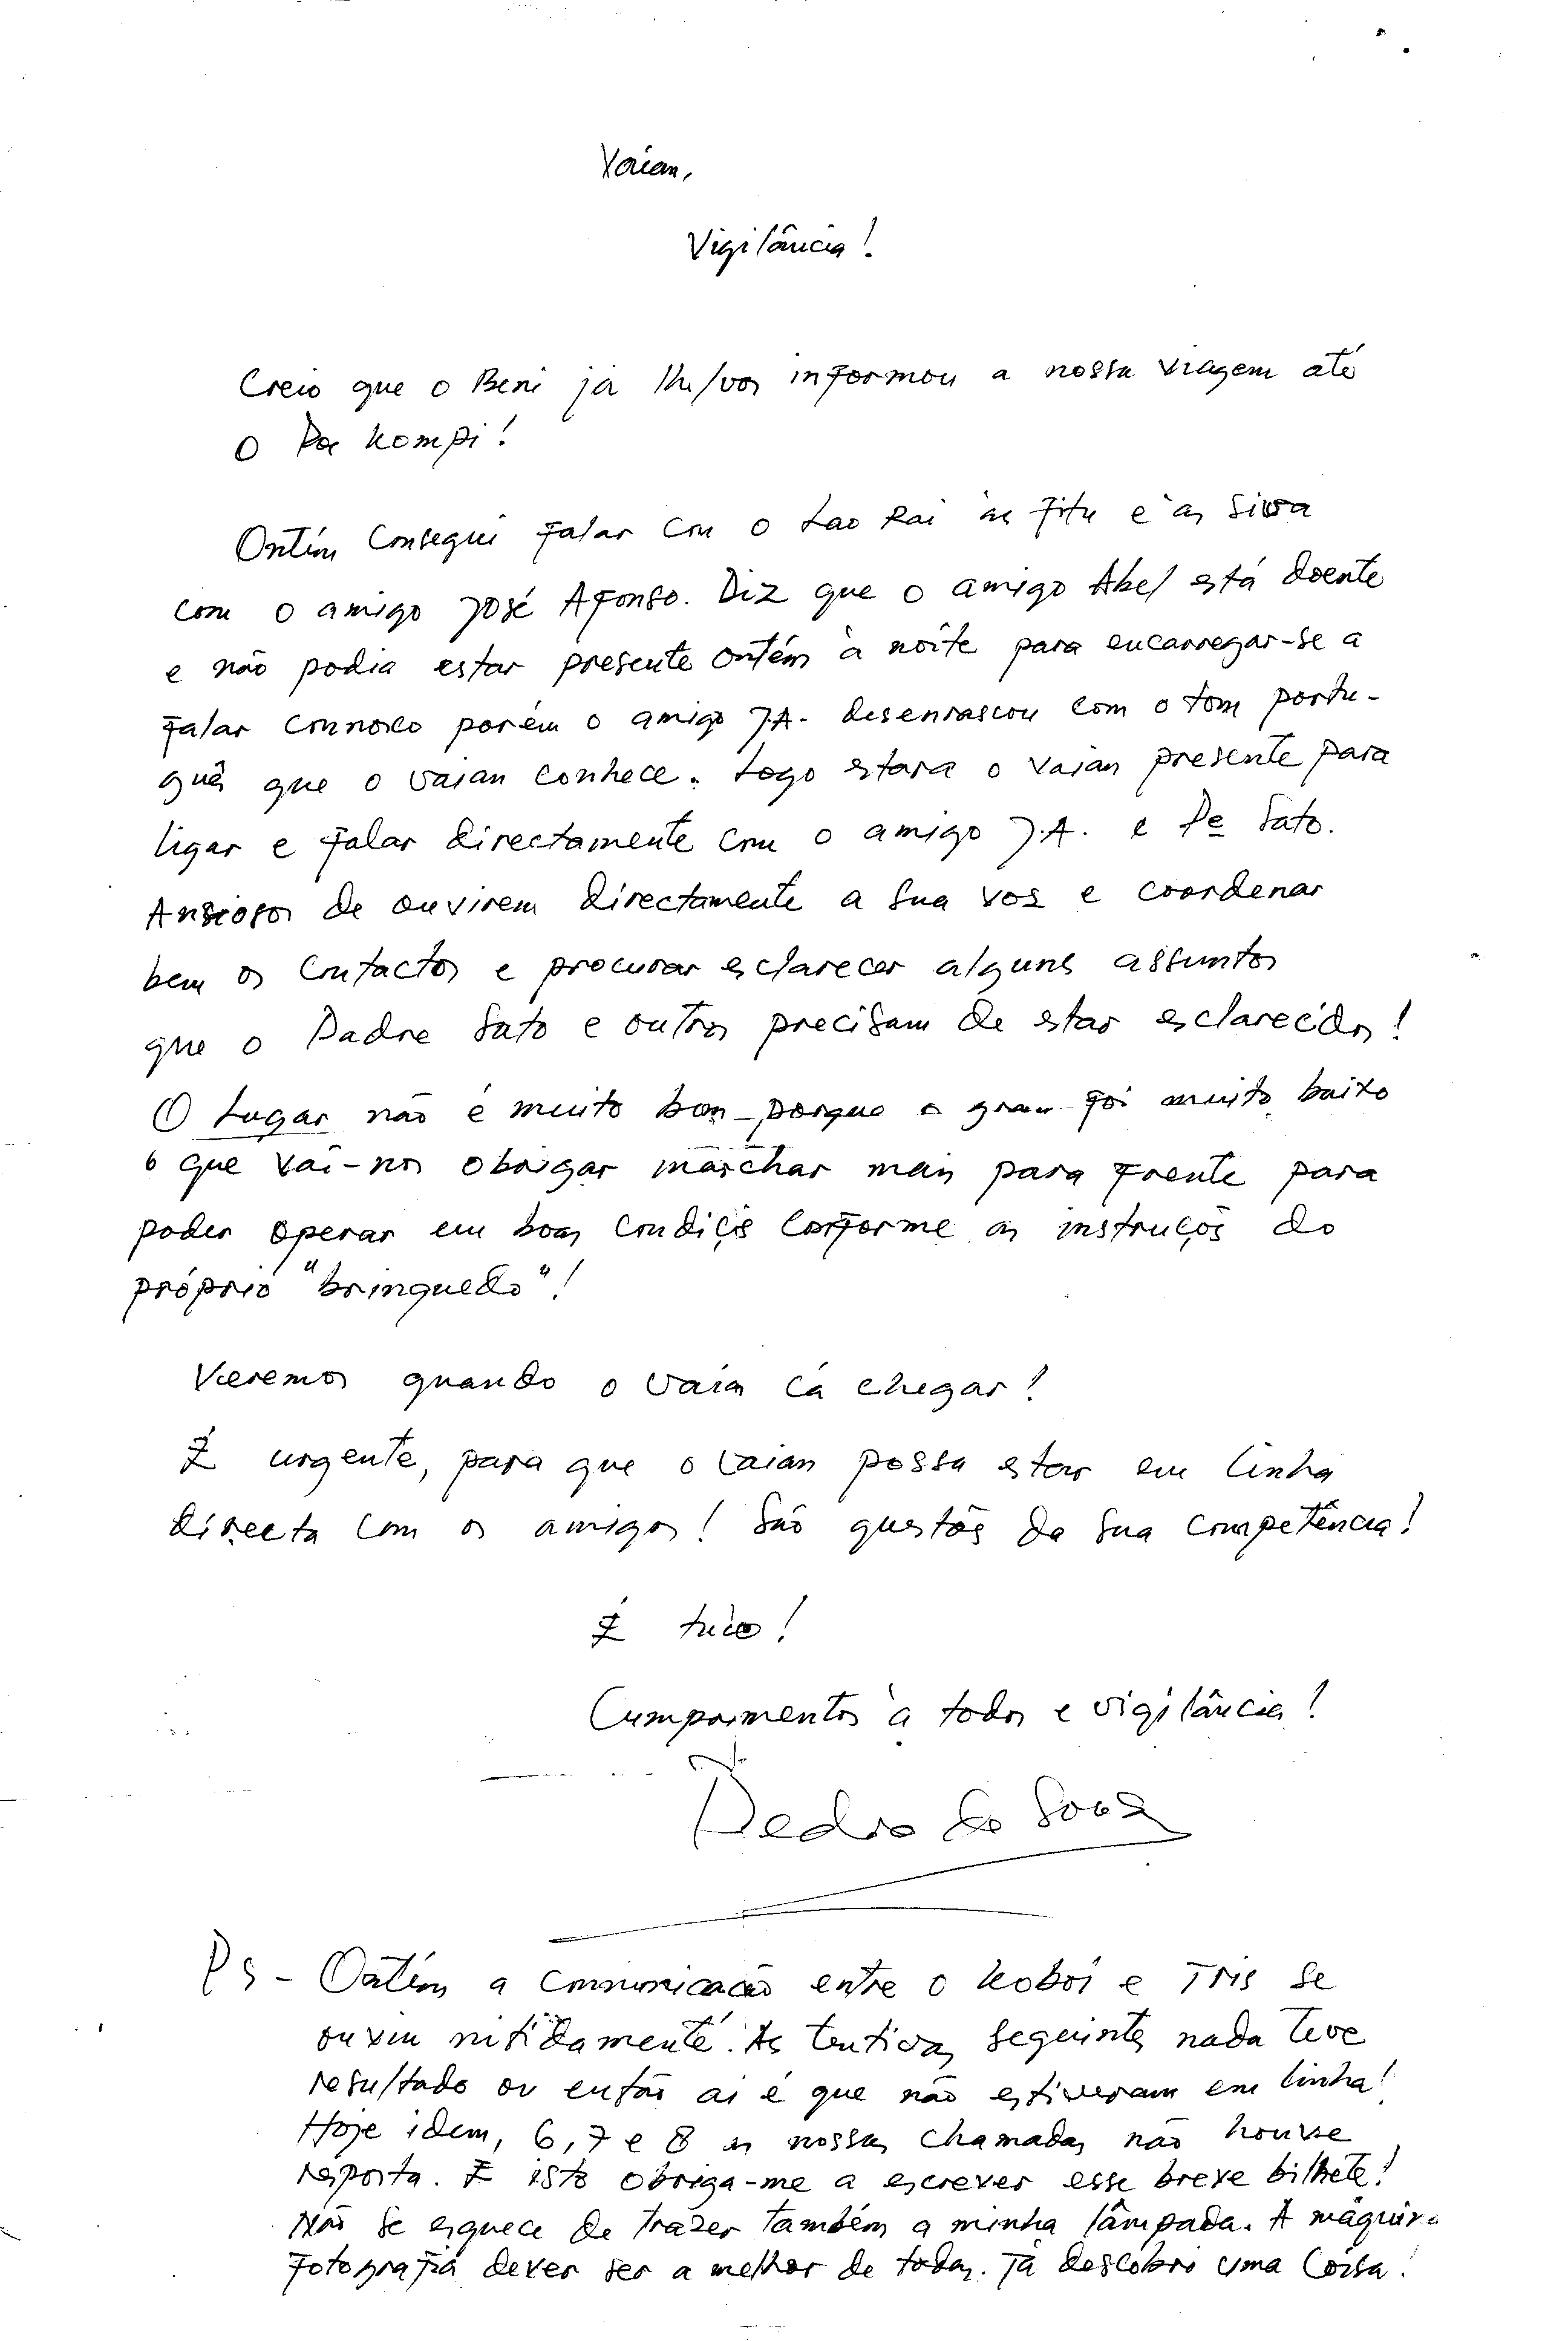 Vaian,
Vigilância!
Creio que o Beni já lhe/vos informou a nossa viagem até
o Pa Kompi!
Ontém consegui falar com o Lao Rai às fitu e às siwa
com o amigo José Afonso. Diz que o amigo Abel está doente
e não podia estar presente ontém à noite para encarregar-se a
falar connosco porém o amigo J.A. desenrascou com o tom portu-
guês que o Vaian conhece. Logo estará o Vaian presente para
ligar e falar directamente com o amigo J.A. e Pe Sato.
Ansiosos de ouvirem directamente a sua vos e coordenar
bem os contactos e procurar esclarecer alguns assuntos
que o Padre Sato e outros precisam de estar esclarecidos!
O lugar não é muito bom porque o grau foi muito baixo
o que vai-nos obrigar marchar mais para frente para
poder operar em boas condiçõs conforme as instruçõs do
próprio "brinquedo"!
Vieremos quando o Vaian cá chegar!
É urgente, para que o Vaian possa estar em linha
directa com os amigos! São questõs da sua competência!
É tudo!
Cumprimentos à todos e vigilância!
Pedro de Souza
PS - Ontém a comunicação entre o Koboi e Tris se
ouviu nitidamente. As tentivas seguintes nada teve
resultado ou então aí é que não estiveram em linha!
Hoje idem, 6, 7 e 8 as nossas chamadas não houve
resposta. E isto obriga-me a escrever esse breve bilhete!
Não se esquece de trazer também a minha lâmpada. A máquina
fotografia dever ser a melhor de todas. Já descobri uma coisa!